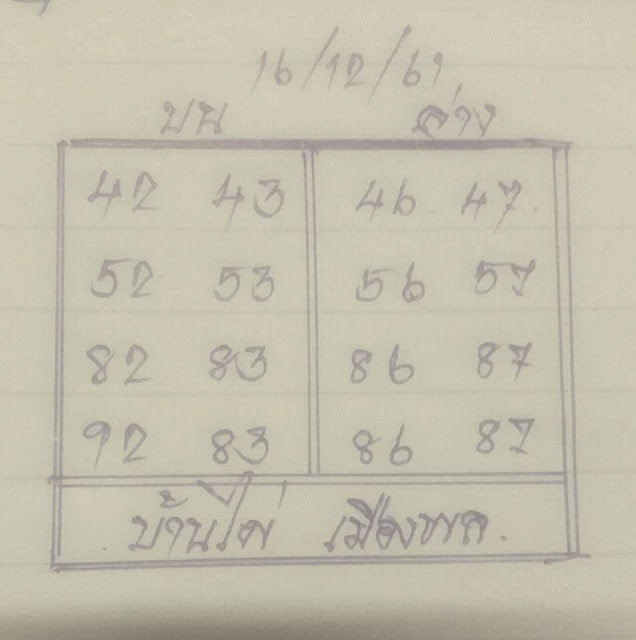 16/12/61
บน ล่าง
42 43 46 47
52 53 56 57
82 83 86 87
92 83 86 87
บ้านไผ่ เมืองพล